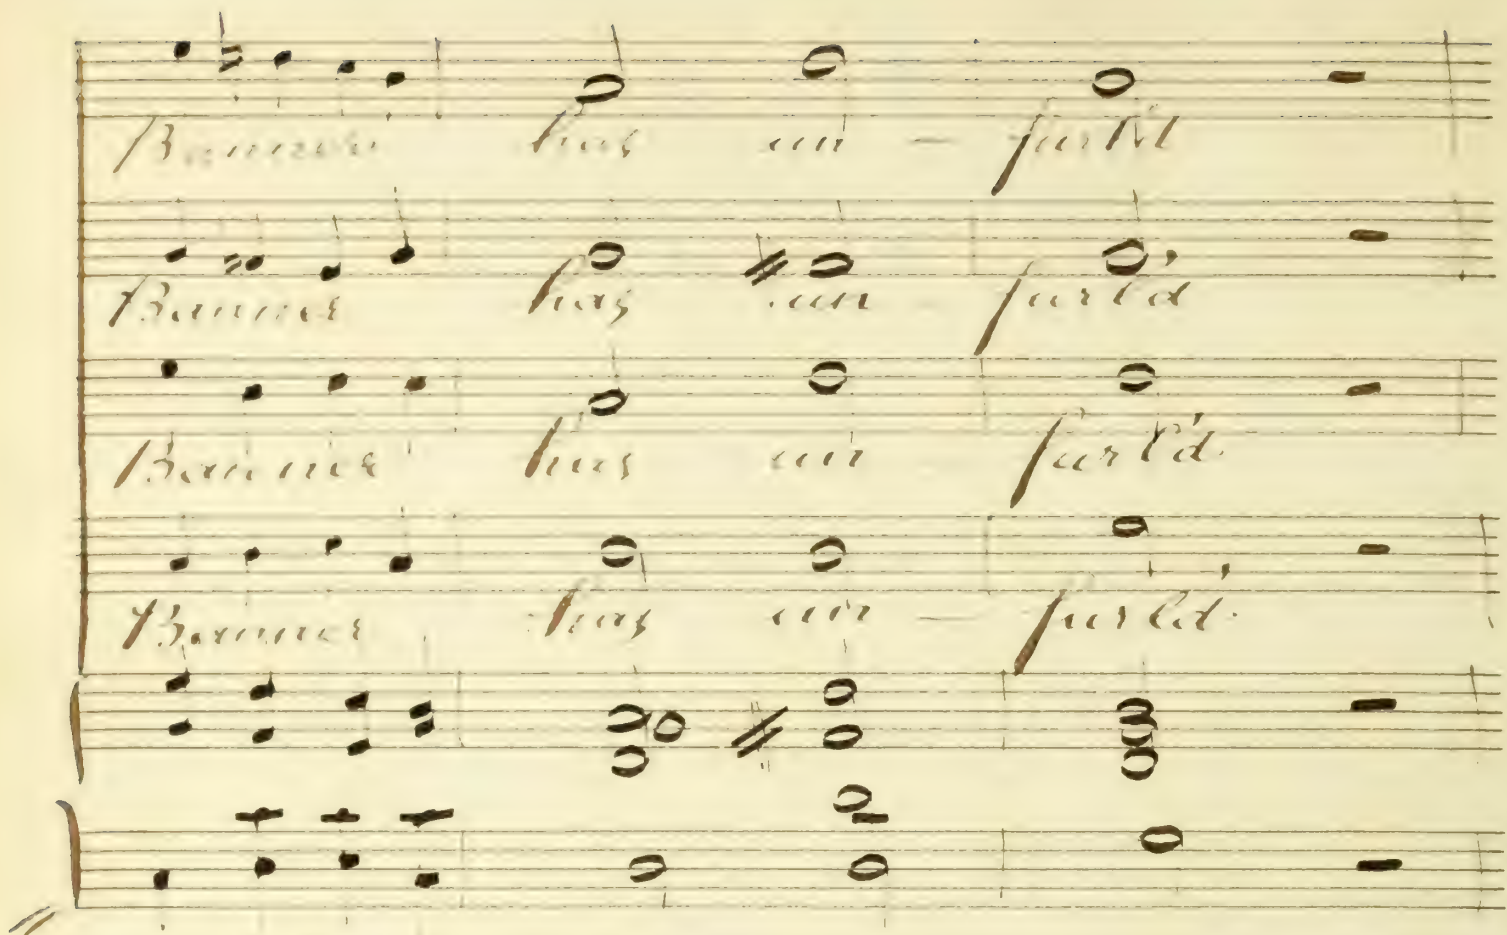 Banner has un - furl'd
Banner has un - furl'd
Banner has un furl'd.
Banner has un - furl'd.